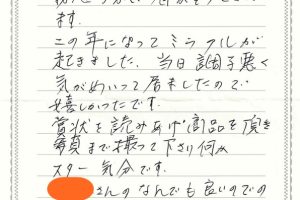 ます。
この年になってミラクルが
起きました。当日調子悪く
気がめいって居ましたので
嬉しかったです。
賞状を読みあげ商品を頂き
写真まで撮って下さり何か
スター気分です。
さんのなんでも良いのでの